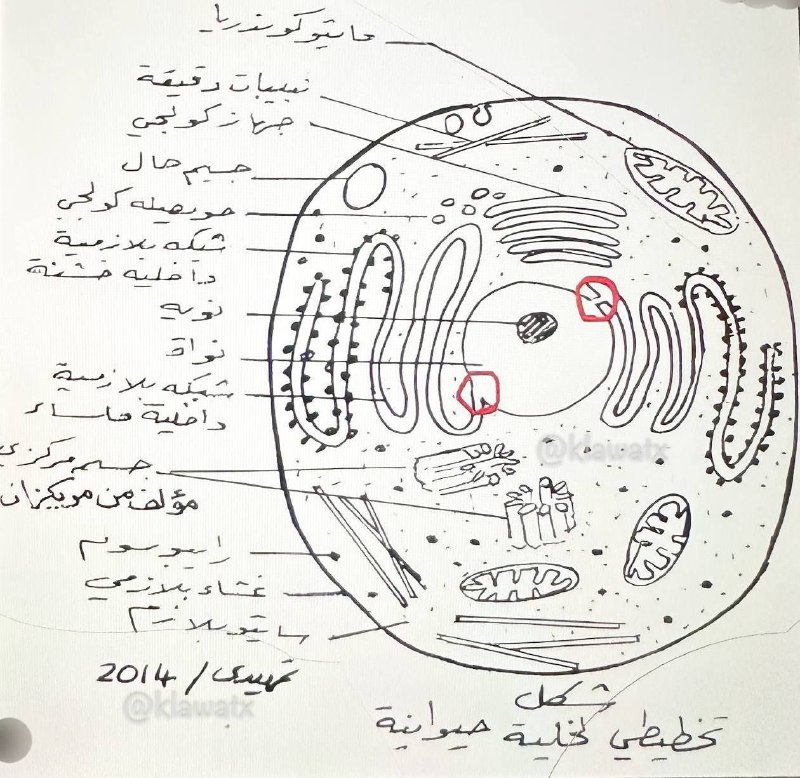 مايتوكوندريا
نبيبات دقيقة
جهاز كولجي
جسيم حال
حويصله كولجي
شبكه بلازمية
داخلية خشنة
نويه
نواة
شبكه بلازمية
داخلية ملساء
جسم مركزي
مؤلف من مريكزان
رايبوسوم
غشاء بلازمي
سايتوبلازم
تمهيدي / 2014
@klawatx
@klawatx
شكل
تخطيطي لخلية حيوانية